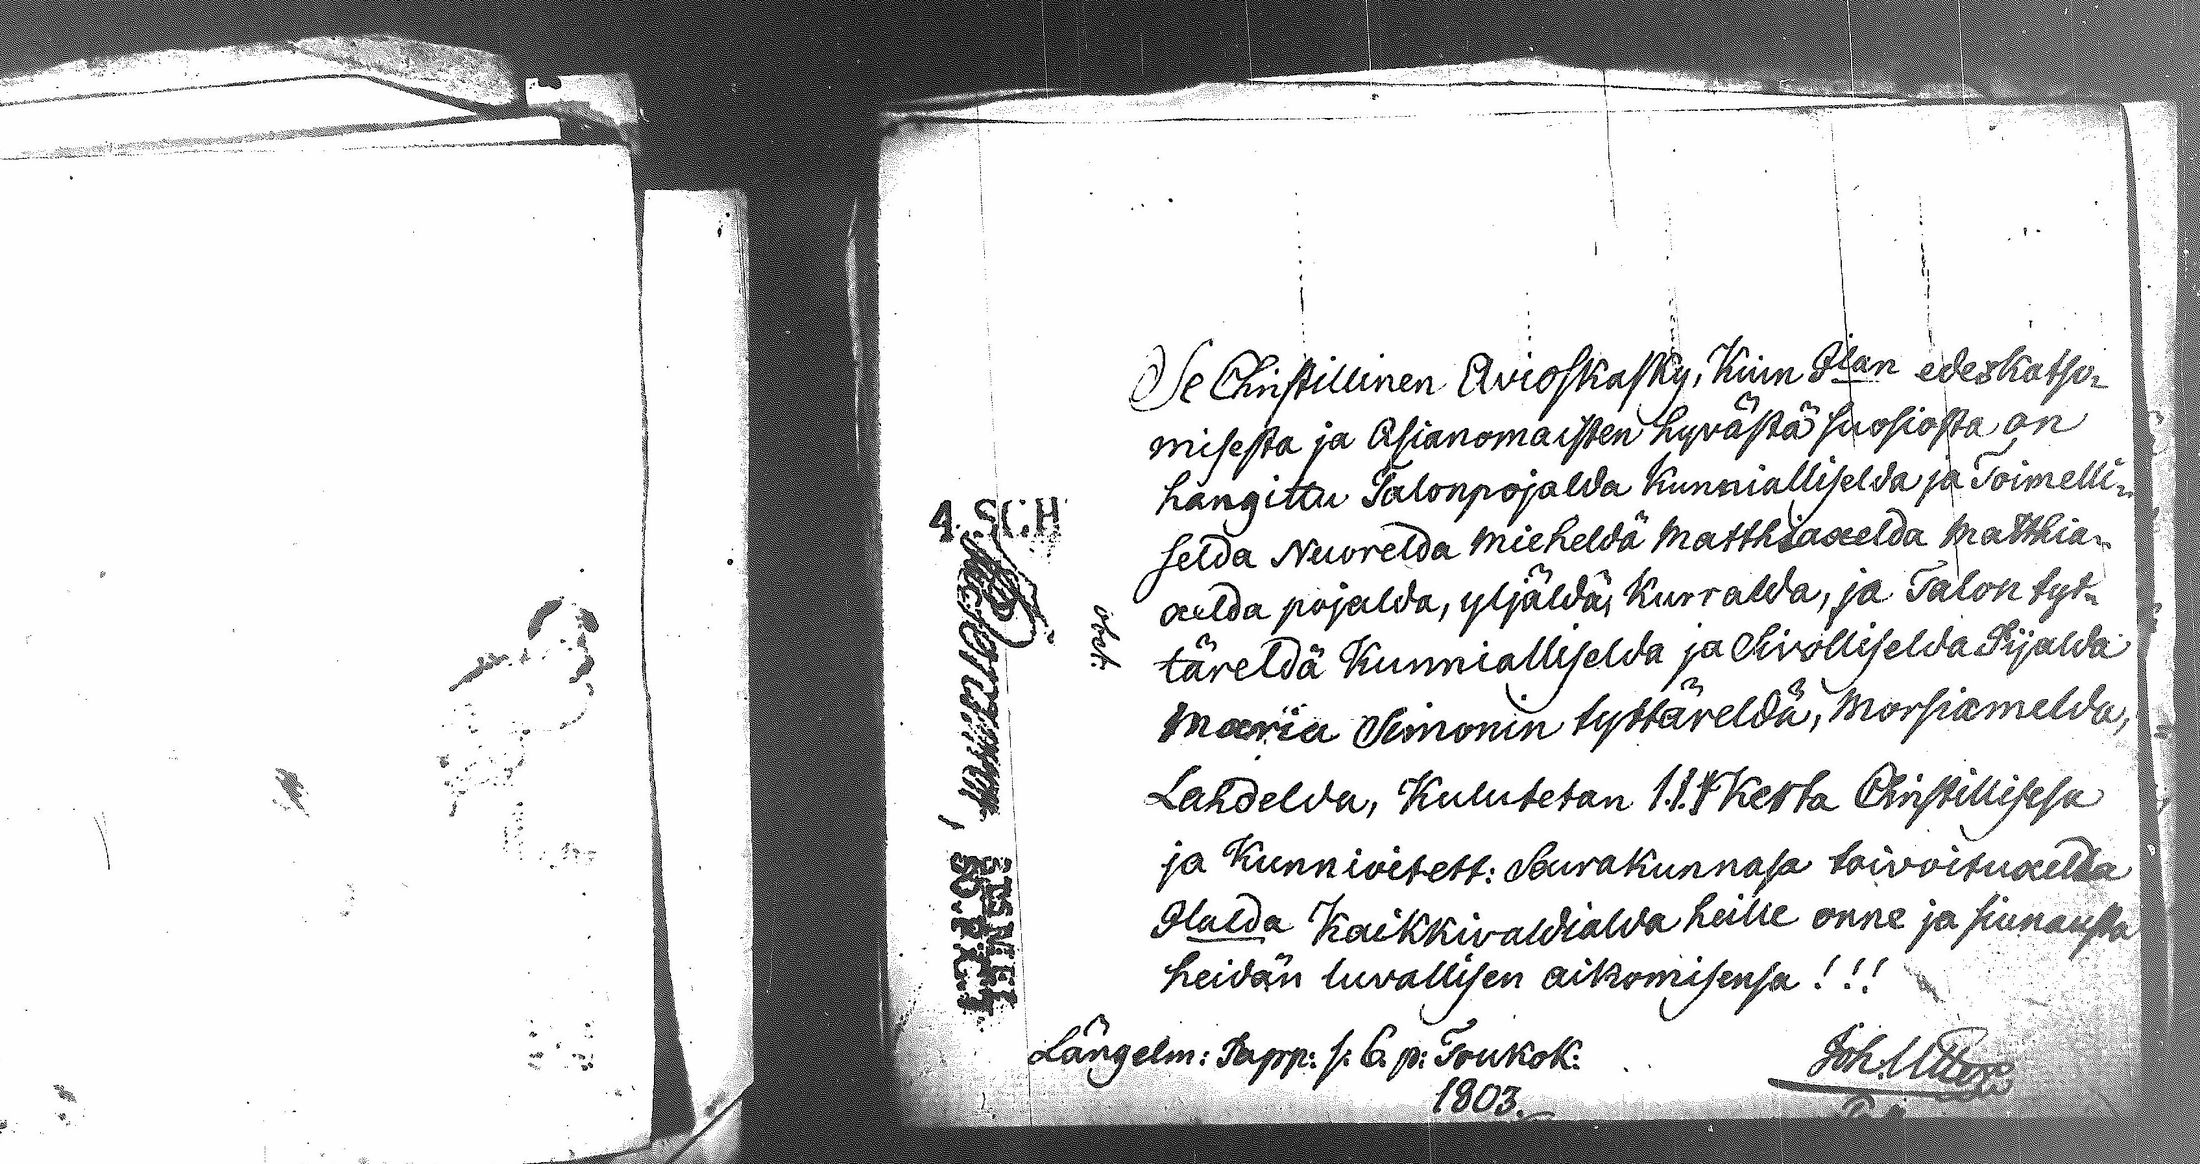 Se Christillinen Avioskäsky, Kuin Jlan edeskatso-
misesta ja Asianomaisten hyvästä suosiosta on
hangittu Talonpojalda Kunnialliselda ja Toimelli-
selda Nuorelda Mieheldä Matthiaxelda Matthia-
xelda pojalda, yljäldä, Kurralda, ja Talon tyt-
täreldä Kunnialliselda ja Sivolliselda Pijalda
Maria Simonin tyttäreldä, Morsiamelda,
Lahdelda, Kulutetan Kerta Christillisesa
ja Kunnioitett: Seurakunnasa toivoituxelda
Jlalda Kaikkivaldialda heille onne ja siunausta
heidän luvallisen aikomisensa!!!
Längelm: Papp: s: 6. p: Toukok:
1803.
Joh.
4. SCH